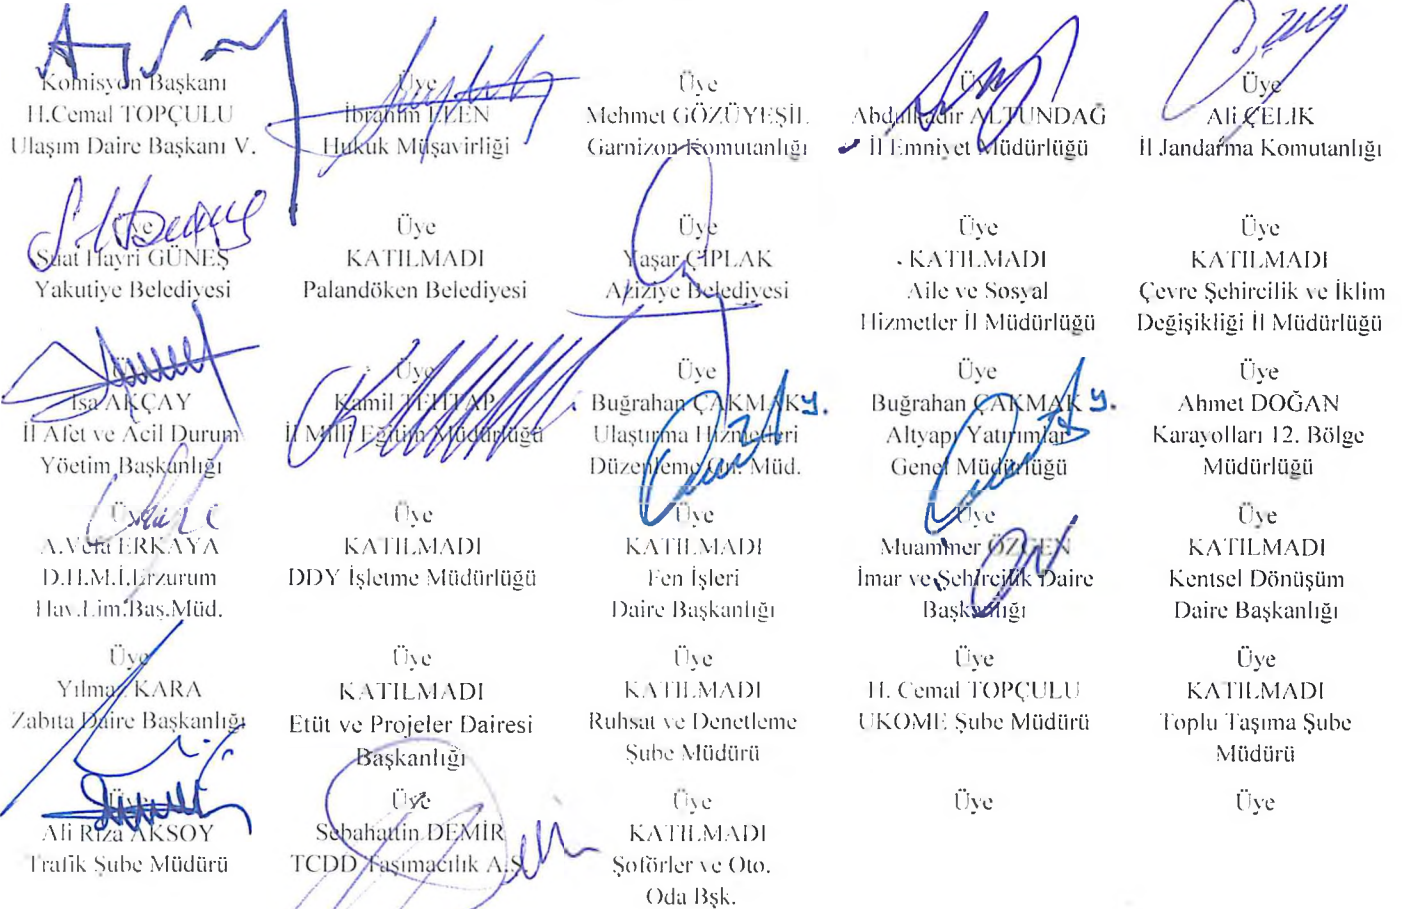 Komisyon Başkanı
H.Cemal TOPÇULU
Ulaşım Daire Başkanı V.
Üye
İbrahim
Hukuk Müşavirliği
Üye
Mehmet GÖZÜYEŞİL
Garnizon Komutanlığı
Üye
Abdulkadir ALTUNDAĞ
İl Emniyet Müdürlüğü
Üye
Ali ÇELİK
İl Jandarma Komutanlığı
Üye
Suat Hayri GÜNEŞ
Yakutiye Belediyesi
Üye
KATILMADI
Palandöken Belediyesi
Üye
Yaşar ÇIPLAK
Aziziye Belediyesi
Üye
KATILMADI
Aile ve Sosyal
Hizmetler İl Müdürlüğü
Üye
KATILMADI
Çevre Şehircilik ve İklim
Değişikliği İl Müdürlüğü
Üye
İsa AKÇAY
İl Afet ve Acil Durum
Yöetim Başkanlığı
Üye
Kamil
İl Milli Eğitim Müdürlüğü
Üye
Buğrahan ÇAKMAK y.
Ulaştırma Hizmetleri
Düzenleme Gn. Müd.
Üye
Buğrahan ÇAKMAK y.
Altyapı Yatırımlar
Genel Müdürlüğü
Üye
Ahmet DOĞAN
Karayolları 12. Bölge
Müdürlüğü
Üye
A.Vefa ERKAYA
D.H.M.İ.Erzurum
Hav.Lim.Baş.Müd.
Üye
KATILMADI
DDY İşletme Müdürlüğü
Üye
KATILMADI
Fen İşleri
Daire Başkanlığı
Üye
Muammer ÖZGEN
İmar ve Şehircilik Daire
Başkanlığı
Üye
KATILMADI
Kentsel Dönüşüm
Daire Başkanlığı
Üye
Yılmaz KARA
Zabıta Daire Başkanlığı
Üye
KATILMADI
Etüt ve Projeler Dairesi
Başkanlığı
Üye
KATILMADI
Ruhsat ve Denetleme
Şube Müdürü
Üye
H. Cemal TOPÇULU
UKOME Şube Müdürü
Üye
KATILMADI
Toplu Taşıma Şube
Müdürü
Üye
Ali Rıza AKSOY
Trafik Şube Müdürü
Üye
Sebahattin DEMİR
TCDD Taşımacılık A.Ş.
Üye
KATILMADI
Şoförler ve Oto.
Oda Bşk.
Üye
Üye